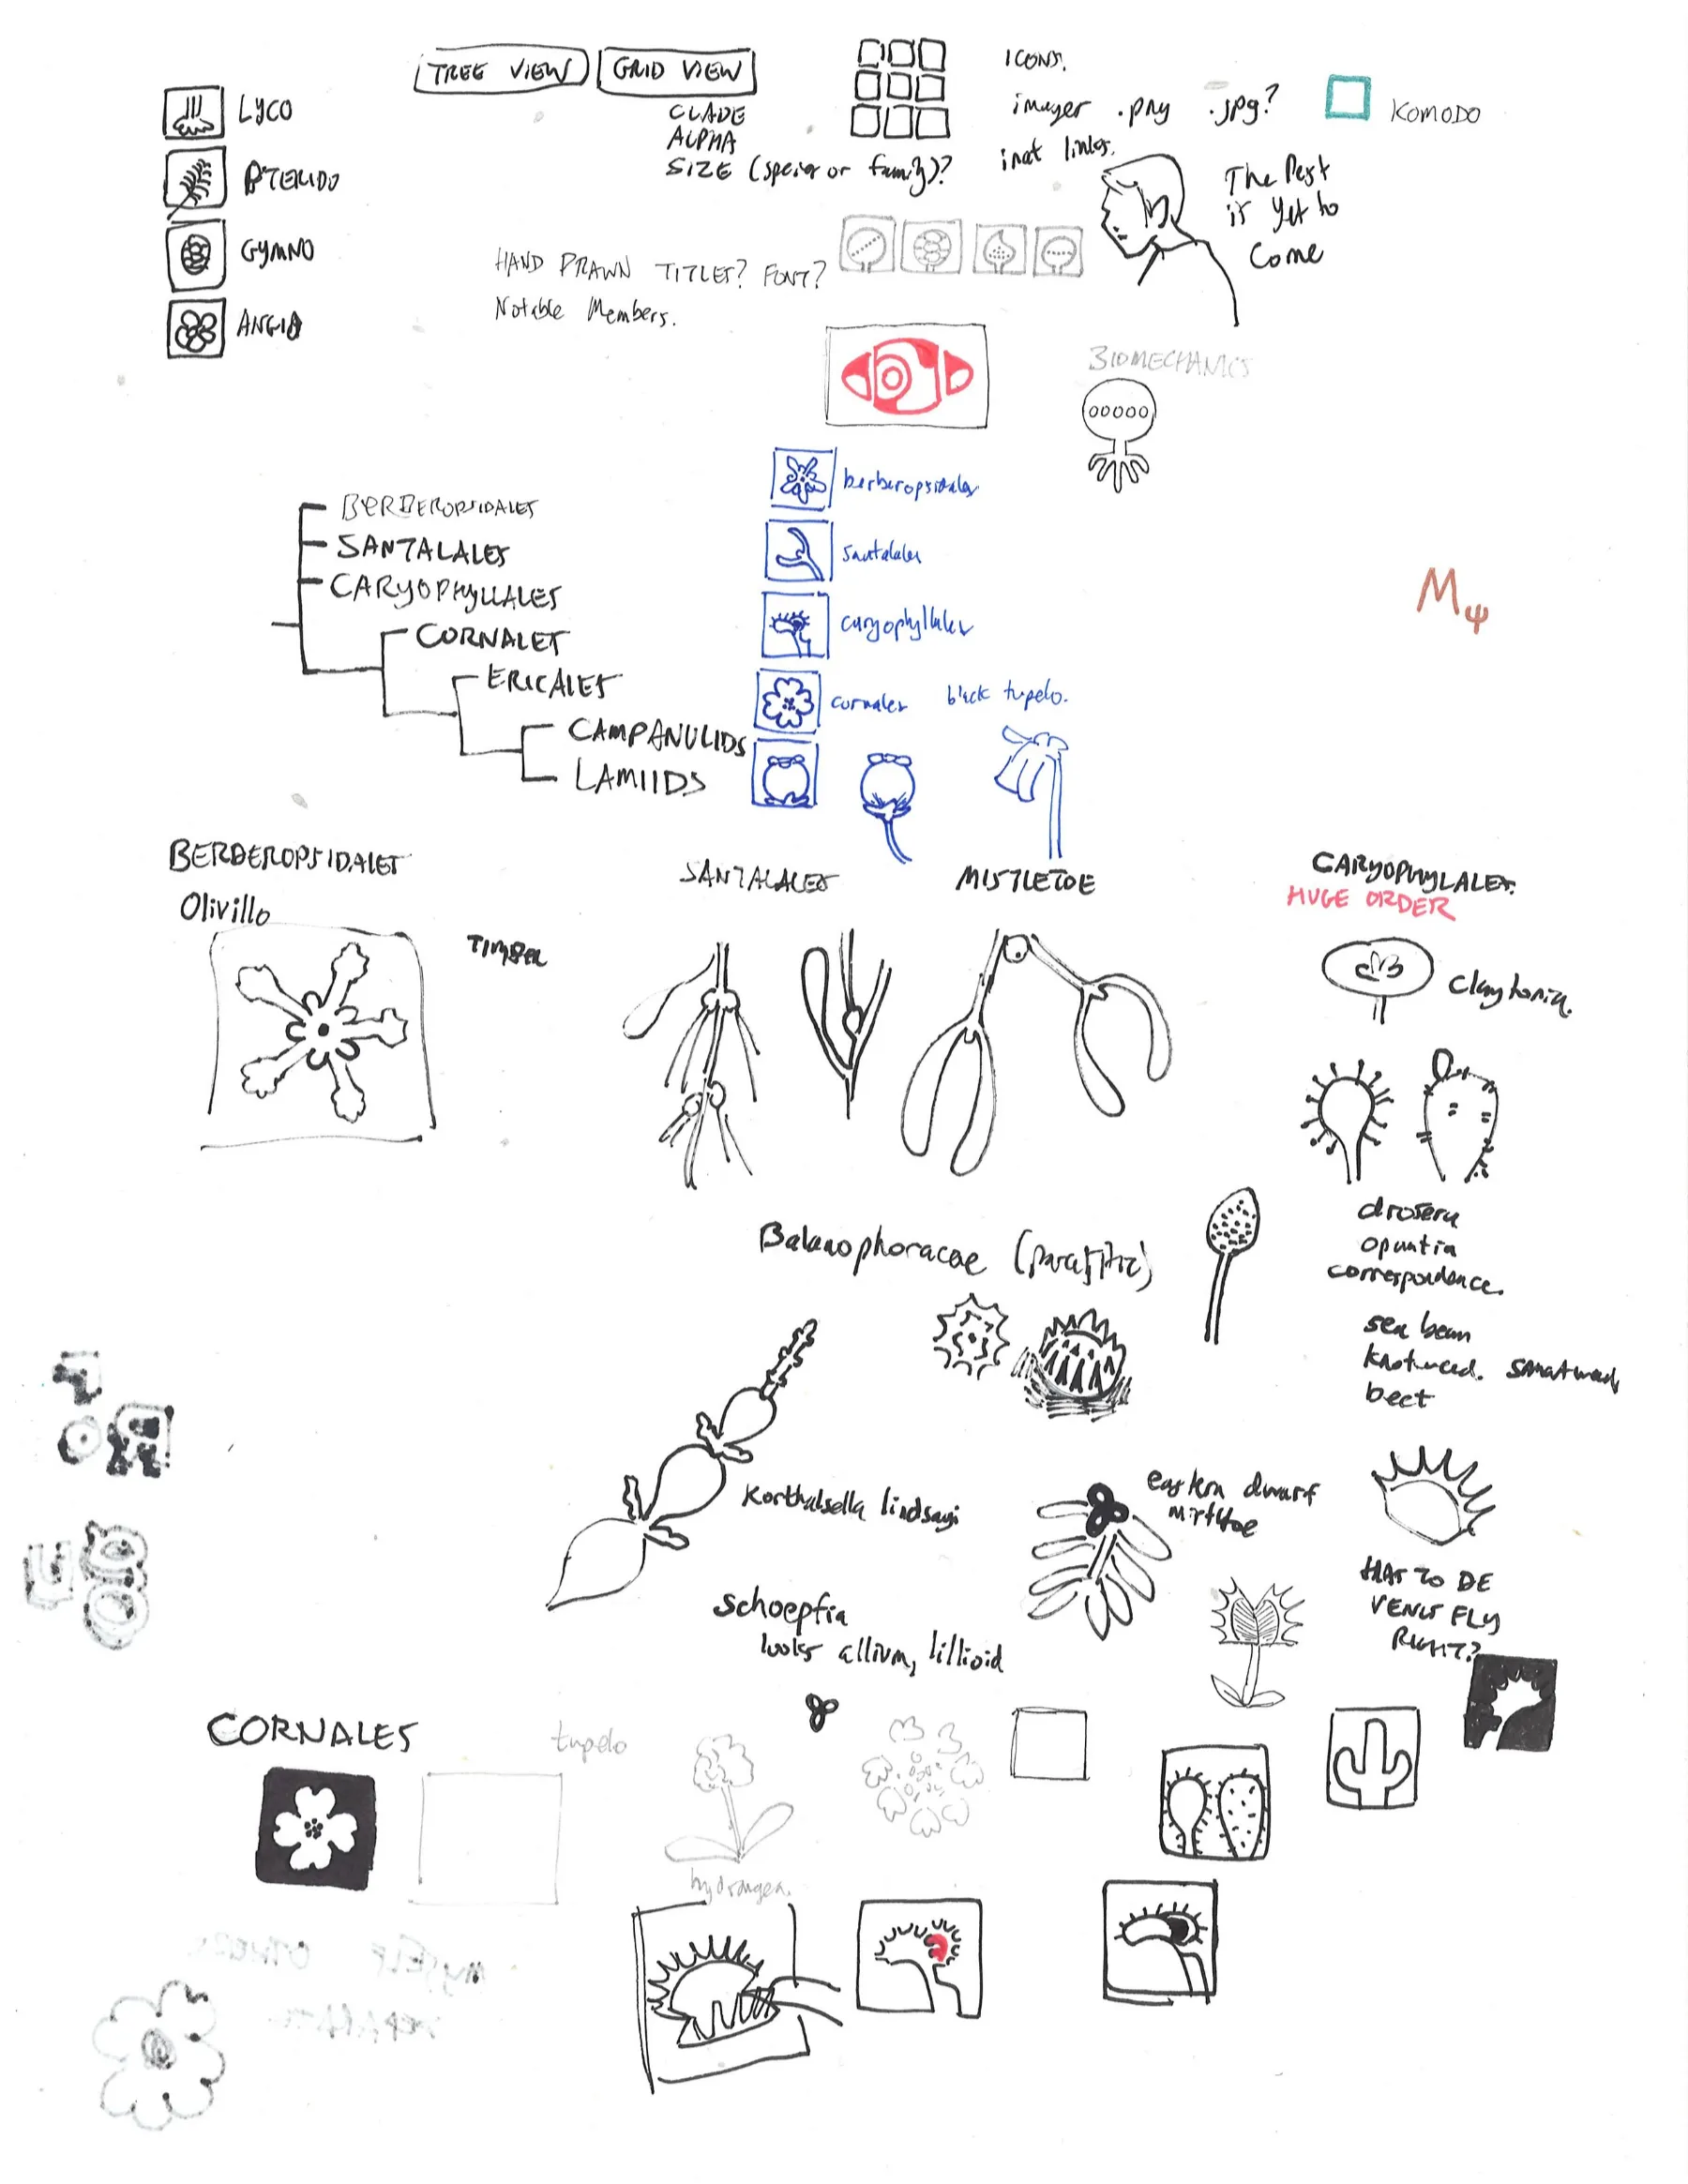 TREE VIEW
GRID VIEW
CLADE
ALPHA
SIZE (species or family)?
ICONS.
images .png .jpg?
inat links.
KOMODO
LYCO
PTERIDO
GYMNO
ANGIO
The Best
is yet to
come
HAND DRAWN TITLES? FONT?
Notable Members.
BIOMECHANICS
00000
BERBEROPSIDALES
SANTALALES
CARYOPHYLLALES
CORNALES
ERICALES
CAMPANULIDS
LAMIIDS
berberopsidales
santalales
caryophyllales
cornales
black tupelo.
Mψ
BERBEROPSIDALES
Olivillo
TIMBER
SANTALALES
MISTLETOE
CARYOPHYLALES.
HUGE ORDER
Claytonia.
drosera
opuntia
correspondence.
sea bean
knotweed. smartweed
beet
Balanophoraceae (parasitic)
Korthalsella lindsayi
eastern dwarf
mistltoe
HAS TO BE
VENUS FLY
RIGHT?
Schoepfia
looks allium, lillioid
CORNALES
tupelo
hydrangea.
MYSELF OTHERS